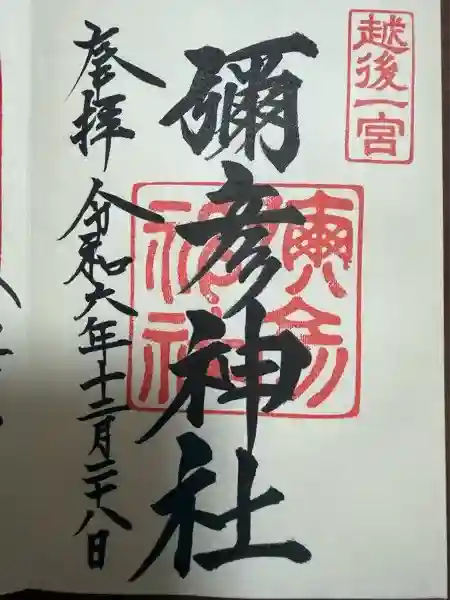 越後一宮
彌彦神社
奉拝
令和六年十二月二十八日